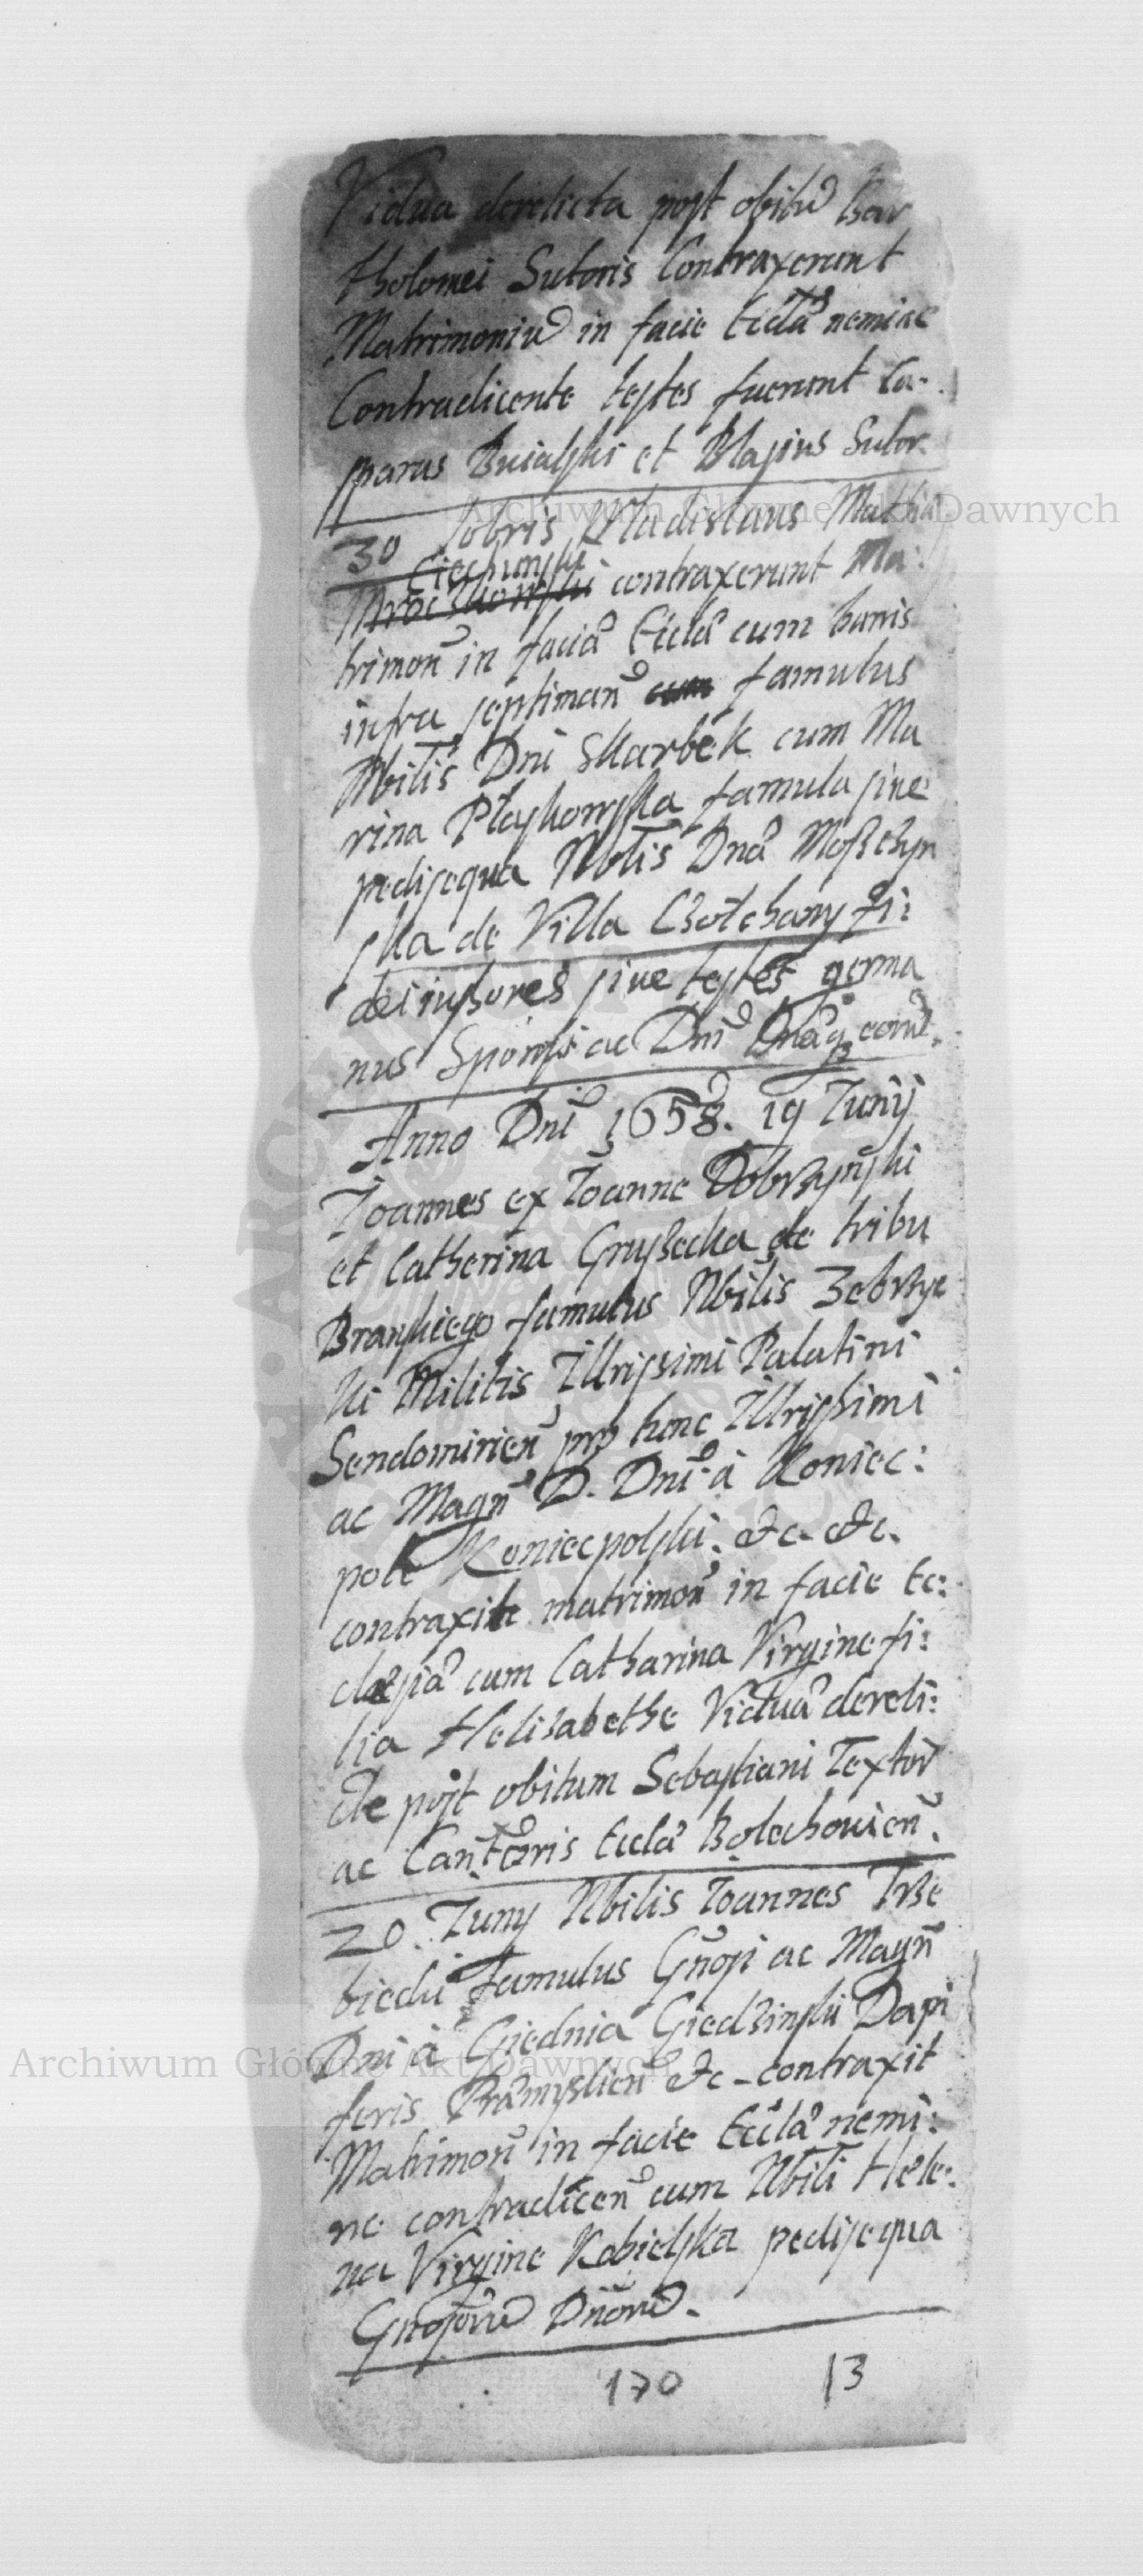 Vidua derelicta post obitu Bar
tholomei Sutoris Contraxerunt
Matrimoniu in facie Eccla nemine
Contradicente testes fuerunt Ca-
sparus Buialski et Blasius Sutor.
30 8obris Vladislaus Mathia
Ciechunski
contraxerunt Ma:
trimon in facia Eccla cum banis
infra septiman cum famulus
Nbilis Dni Skarbek cum Ma
rina Płaskowska famula sive
pedisequa Nbtis Dna Moszczyn
ska de Villa Czołchany fi:
deiussores sive testes germa
nus Sponsi ac Dni
Anno Dni 1658. 19 Junij
Joannes ex Joanne Dobrzynski
et Catherina Gruszecka de tribu
Branskiego famulus Nbilis Zebrzyc
ki Militis Illrissimi Palatini
Sendomirien pro hunc Illrissimi
ac Magn D. Dni à Koniec:
pole Koniecpolski. &c. &c.
contraxit matrimon in facie Ec:
clesia cum Catharina Virgine fi:
lia Helisabethe Vidua dereli:
cte post obitum Sebastiani Textor
ac Cantoris Eccla Bolechovien.
20. Juny Nbilis Joannes Trze
biecki famulus Gnosi ac Magn
Dni à Giednia Giedzinski Dapi
feris Præmyslien &c - contraxit
Matrimon in facie Eccla nemi:
ne contradicen cum Nbili Hele:
na Virgine Kobielska pedisequa
Gnosoru Dnoru.
170 13
Archiwum Główne Akt Dawnych
Archiwum Główne Akt Dawnych